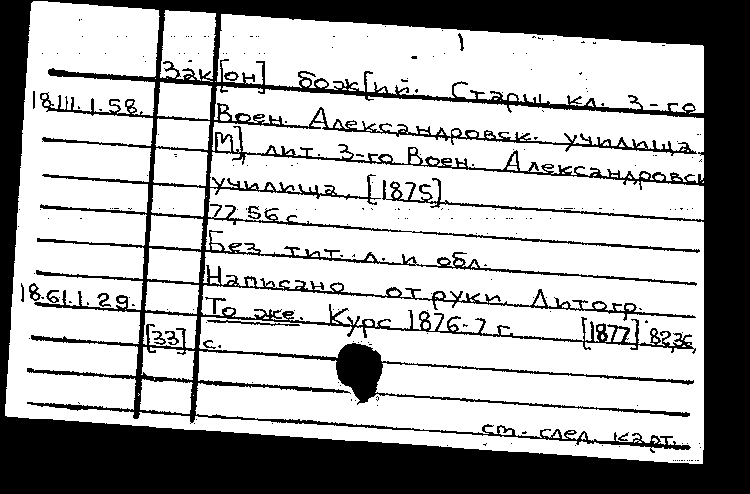 1
Зак[он] бож[ий. Старш. кл. 3-го
18.III.1.58. Воен. Александровск. училища.
М], лит. 3-го Воен. Александровск
училища, [1875].
72, 56 с.
Без тит. л. и обл.
Написано от руки. Литогр.
18.61.1.29. То же. Курс 1876-7 г. [1877]. 82, 36,
[33] с.
см. след. карт.